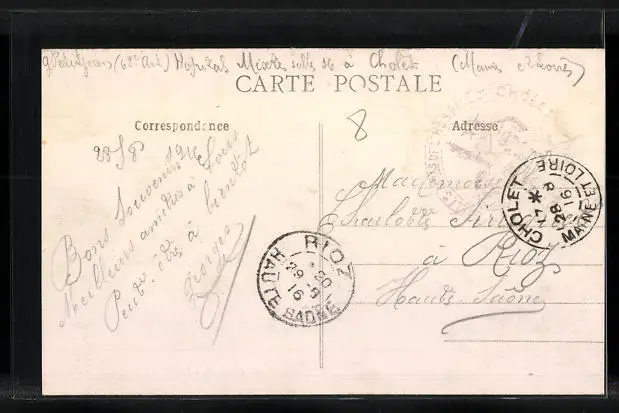 G Petitjean (62e Art) Hopital Mixte salle 36 à Cholet (Maine et Loire)
CARTE POSTALE
Correspondance
Adresse
8
28/8 1916
Bons Souvenirs
Meilleurs amitiés à tous
Peut-être à bientôt
Georges
Mademoiselle
Charlotte
à Rioz
Haute-Saône
CHOLET
28 8 16
MAINE ET LOIRE
RIOZ
29 -8 16
HAUTE SAONE